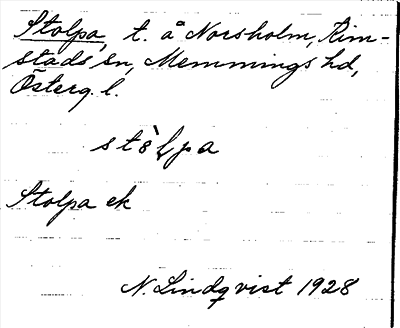 Stolpa, t. å Norsholm, Kim-
stads sn, Memmings hd,
Österg. l.
stòlpa
Stolpa ek
N. Lindqvist 1928